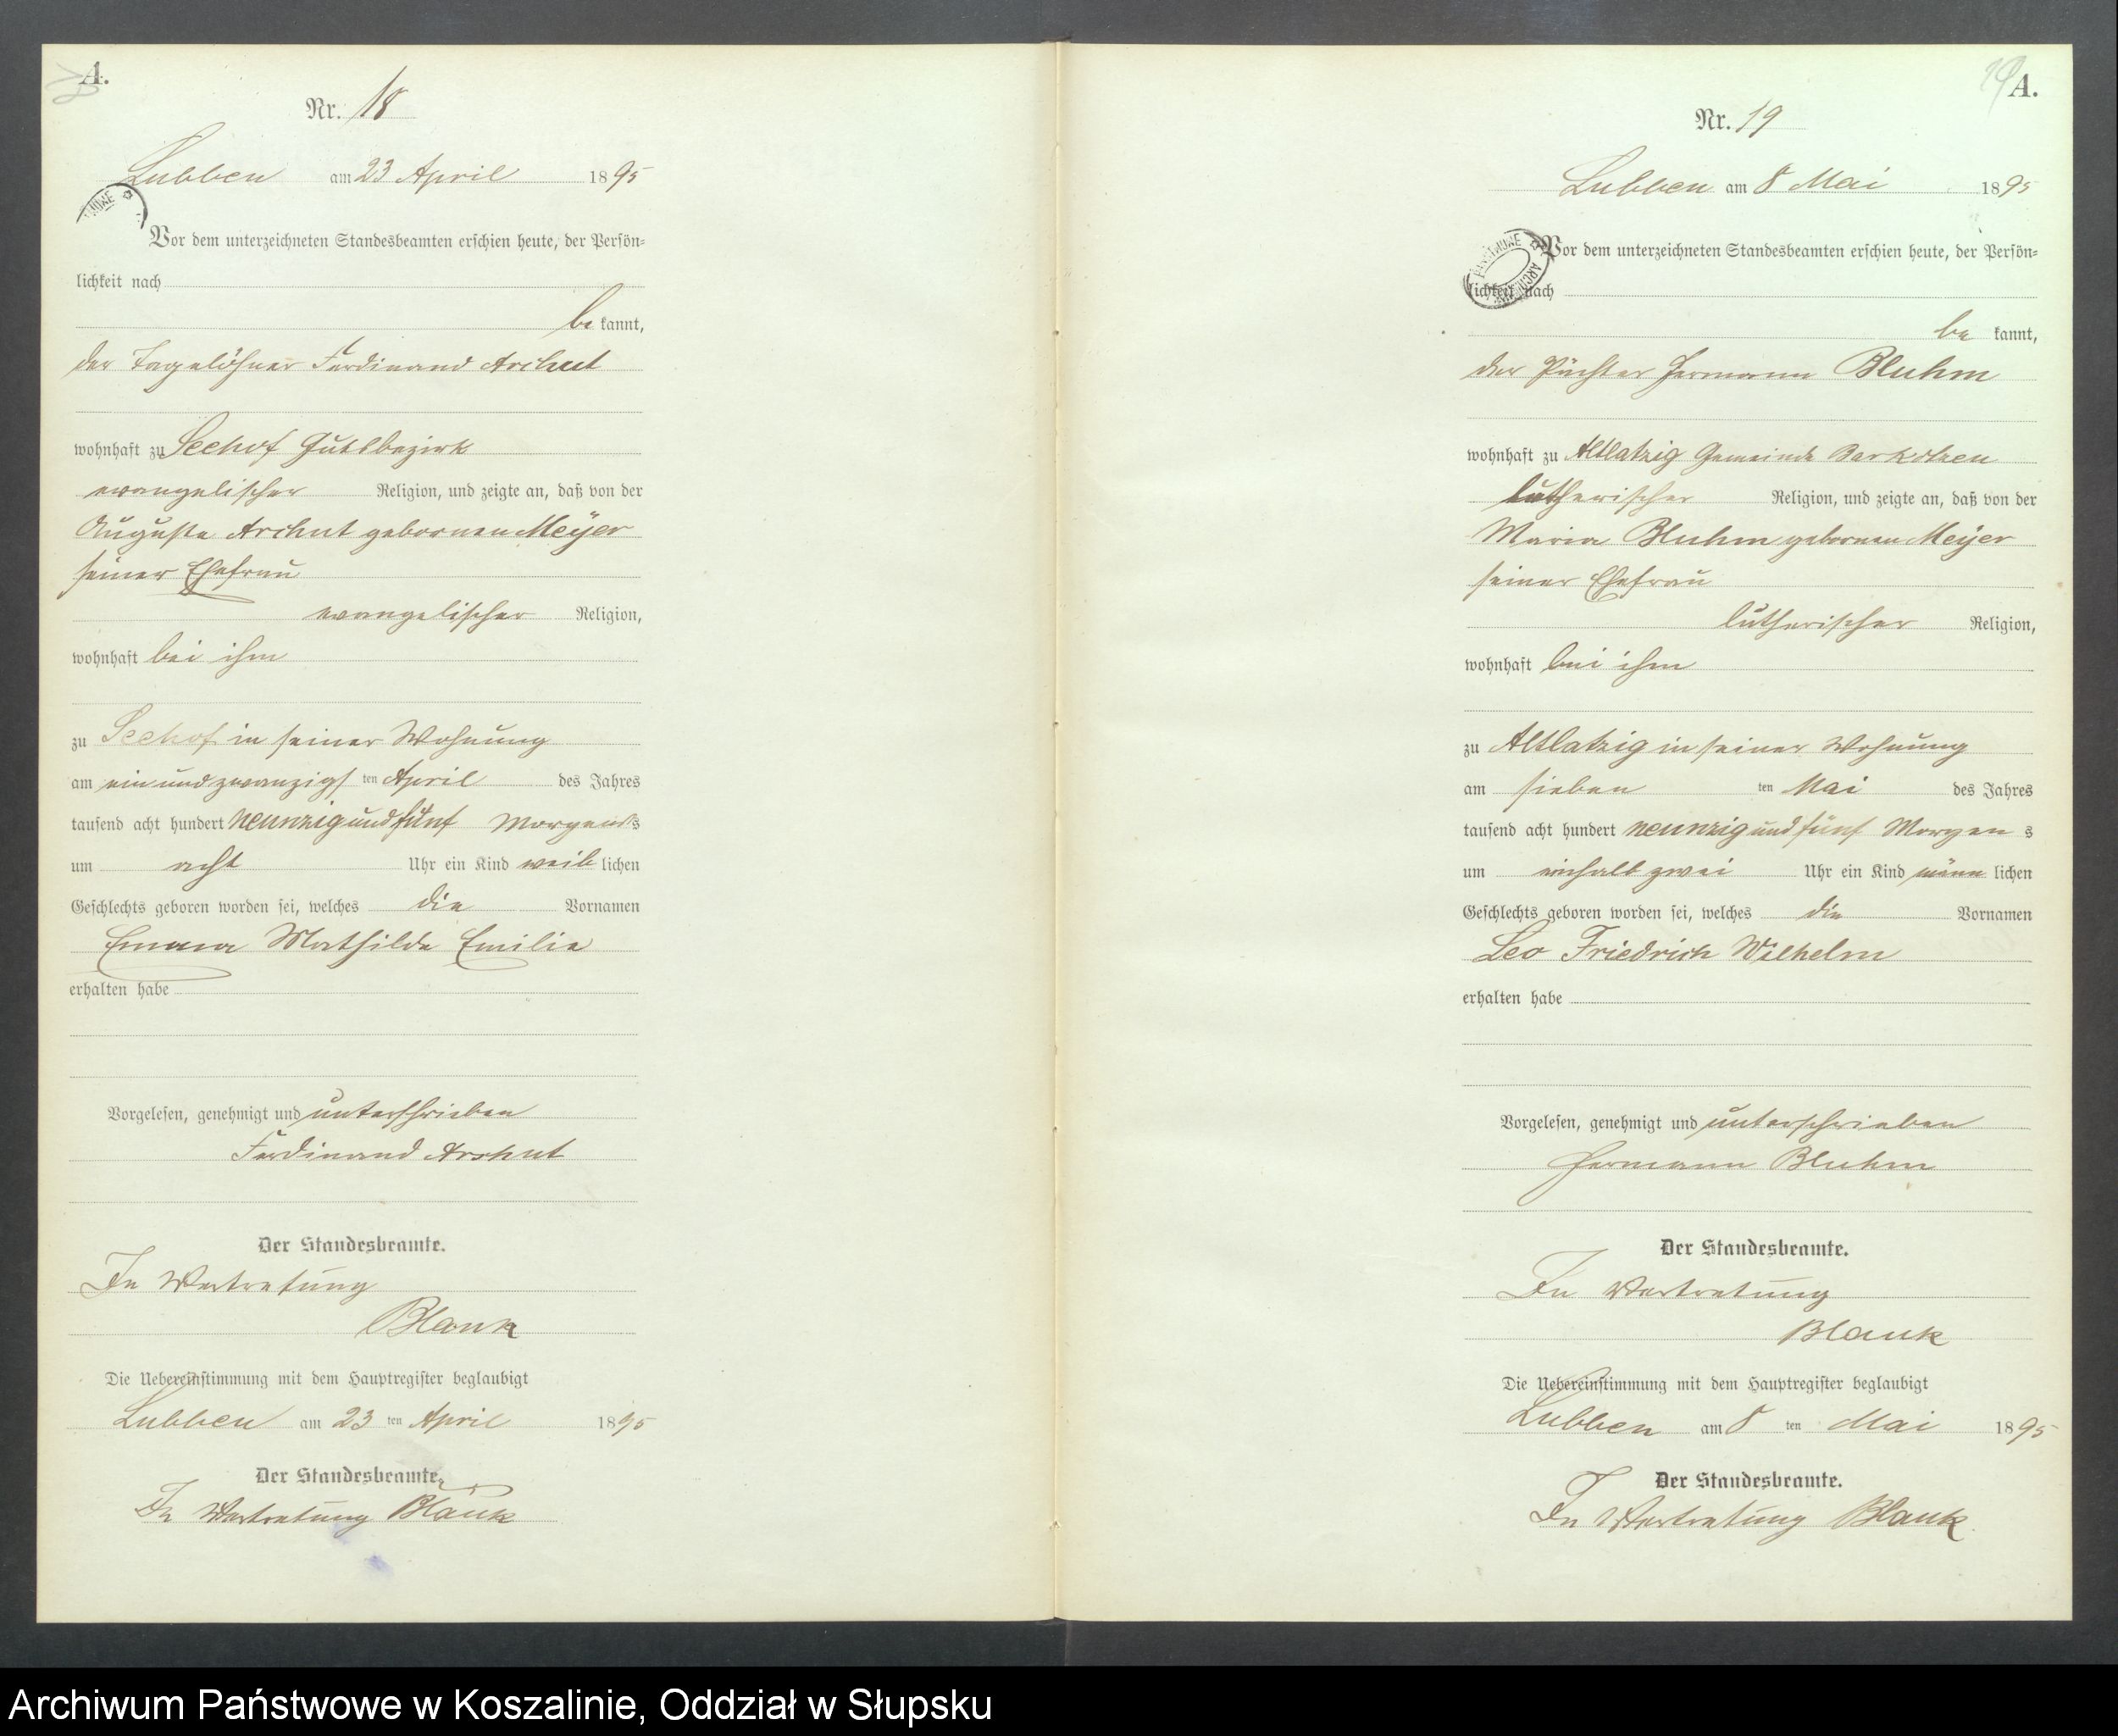 A.
Nr. 18
Lubben am 23 April 1895
Vor dem unterzeichneten Standesbeamten erschien heute, der Persön-
lichkeit nach
be kannt,
der Tagelöhner Ferdinand Archut
wohnhaft zu Seehof Gutsbezirk
evangelischer Religion, und zeigte an, daß von der
Auguste Archut gebornen Meÿer
seiner Ehefrau
evangelischer Religion,
wohnhaft bei ihm
zu Seehof in seiner Wohnung
am ein und zwanzigs ten April des Jahres
tausend acht hundert neunzig und fünf Morgens
um acht Uhr ein Kind weib lichen
Geschlechts geboren worden sei, welches die Vornamen
Emma Mathilde Emilie
erhalten habe
Vorgelesen, genehmigt und unterschrieben
Ferdinand Archut
Der Standesbeamte.
In Vertretung
Blank
Die Uebereinstimmung mit dem Hauptregister beglaubigt
Lubben am 23 ten April 1895
Der Standesbeamte.
In Vertretung Blank
19 A.
Nr. 19
Lubben am 8 Mai 1895
Vor dem unterzeichneten Standesbeamten erschien heute, der Persön-
lichkeit nach
be kannt,
der Pächter Hermann Bluhm
wohnhaft zu Altlatzig Gemeinde Barkotzen
lutherischer Religion, und zeigte an, daß von der
Maria Bluhm gebornen Meÿer
seiner Ehefrau
lutherischer Religion,
wohnhaft bei ihm
zu Altlatzig in seiner Wohnung
am sieben ten Mai des Jahres
tausend acht hundert neunzig und fünf Morgen s
um einhalb zwei Uhr ein Kind männ lichen
Geschlechts geboren worden sei, welches die Vornamen
Leo Friedrich Wilhelm
erhalten habe
Vorgelesen, genehmigt und unterschrieben
Hermann Bluhm
Der Standesbeamte.
In Vertretung
Blank
Die Uebereinstimmung mit dem Hauptregister beglaubigt
Lubben am 8 ten Mai 1895
Der Standesbeamte.
In Vertretung Blank
Archiwum Państwowe w Koszalinie, Oddział w Słupsku